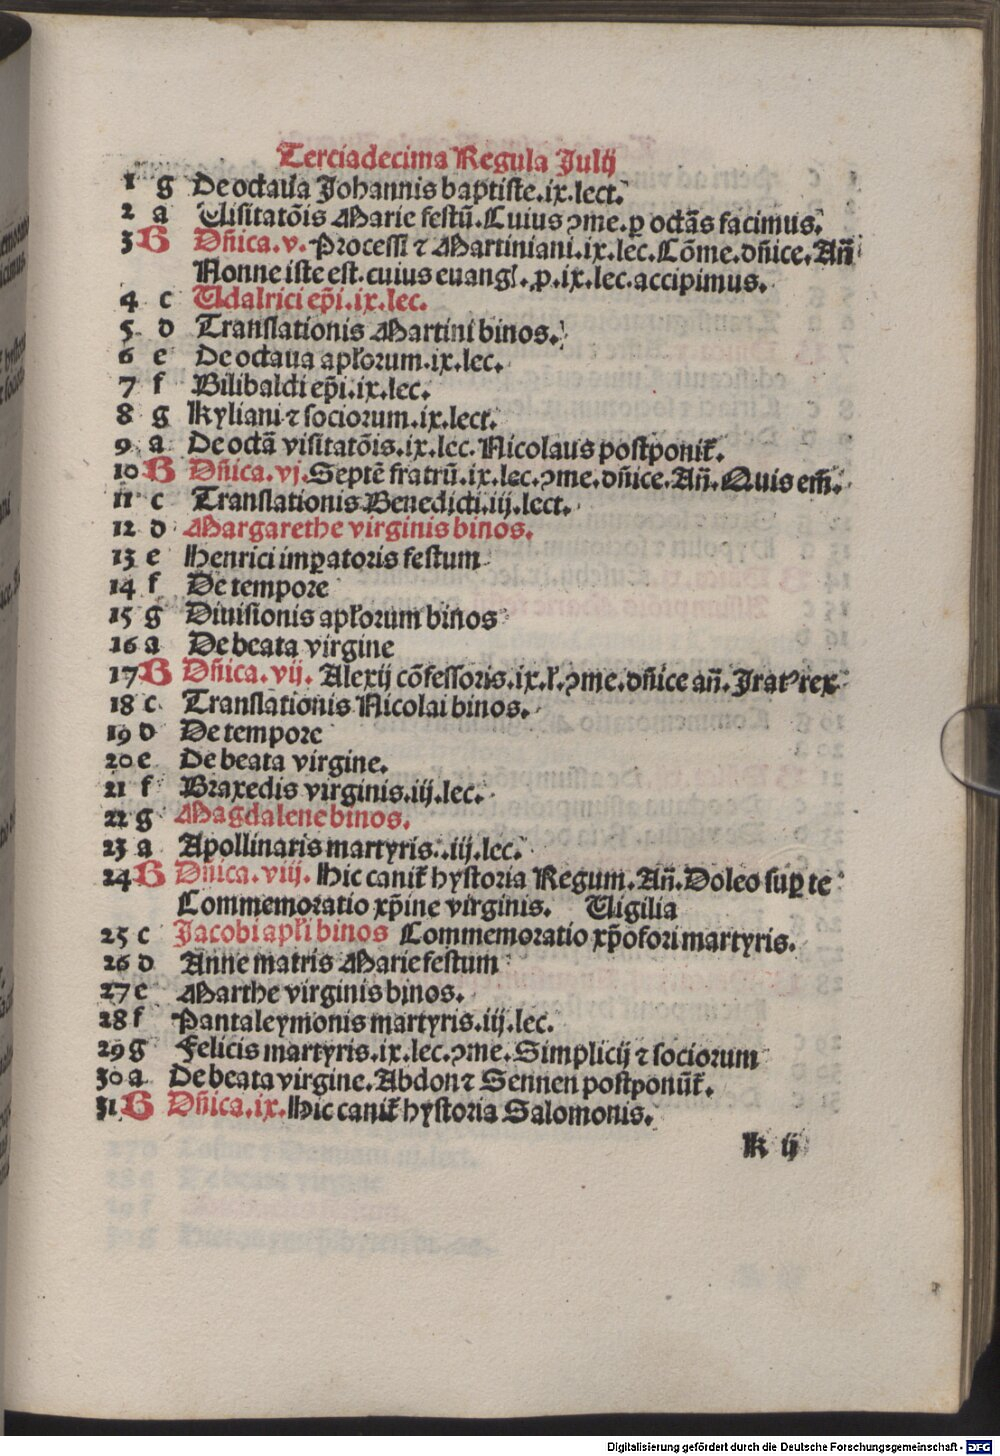 Terciadecima Regula Julij
1 g De octaua Johannis baptiste.ix.lect.
2 a Uisitatōis Marie festū.Cuius ꝯme.ꝑ octās facimus.
3 B Dn̄ica.v.Processi ⁊ Martiniani.ix.lec.Cōme.dn̄ice.An̄
Nonne iste est.cuius euangl̓.ꝓ.ix.lec.accipimus.
4 c Udalrici ep̄i.ix.lec.
5 d Translationis Martini binos.
6 e De octaua apl̓orum.ix.lec.
7 f Bilibaldi ep̄i.ix.lec.
8 g Kyliani ⁊ sociorum.ix.lect.
9 a De octā visitatōis.ix.lec.Nicolaus postponit̓.
10 B Dn̄ica.vj.Septē fratrū.ix.lec.ꝯme.dn̄ice.An̄.Quis em̄.
11 c Translationis Benedicti.iij.lect.
12 d Margarethe virginis binos.
13 e Henrici imꝑatoris festum
14 f De tempore
15 g Diuisionis apl̓orum binos
16 a De beata virgine
17 B Dn̄ica.vij. Alexij cōfessoris.ix.l̓.ꝯme.dn̄ice an̄.Iratꝰ rex
18 c Translationis Nicolai binos.
19 d De tempore
20 e De beata virgine.
21 f Braxedis virginis.iij.lec.
22 g Magdalene binos.
23 a Apollinaris martyris..iij.lec.
24 B Dn̄ica.viij. Hic canit̓ hystoria Regum.An̄.Doleo suꝑ te
Commemoratio xp̄ine virginis. Uigilia
25 c Jacobi apl̓i binos Commemoratio xp̄ofori martyris.
26 d Anne matris Marie festum
27 e Marthe virginis binos.
28 f Pantaleymonis martyris.iij.lec.
29 g Felicis martyris.ix.lec.ꝯme.Simplicij ⁊ sociorum
30 a De beata virgine.Abdon ⁊ Sennen postponūt̓.
31 B Dn̄ica.ix.Hic canit̓ hystoria Salomonis.
k ij
Digitalisierung gefördert durch die Deutsche Forschungsgemeinschaft - DFG